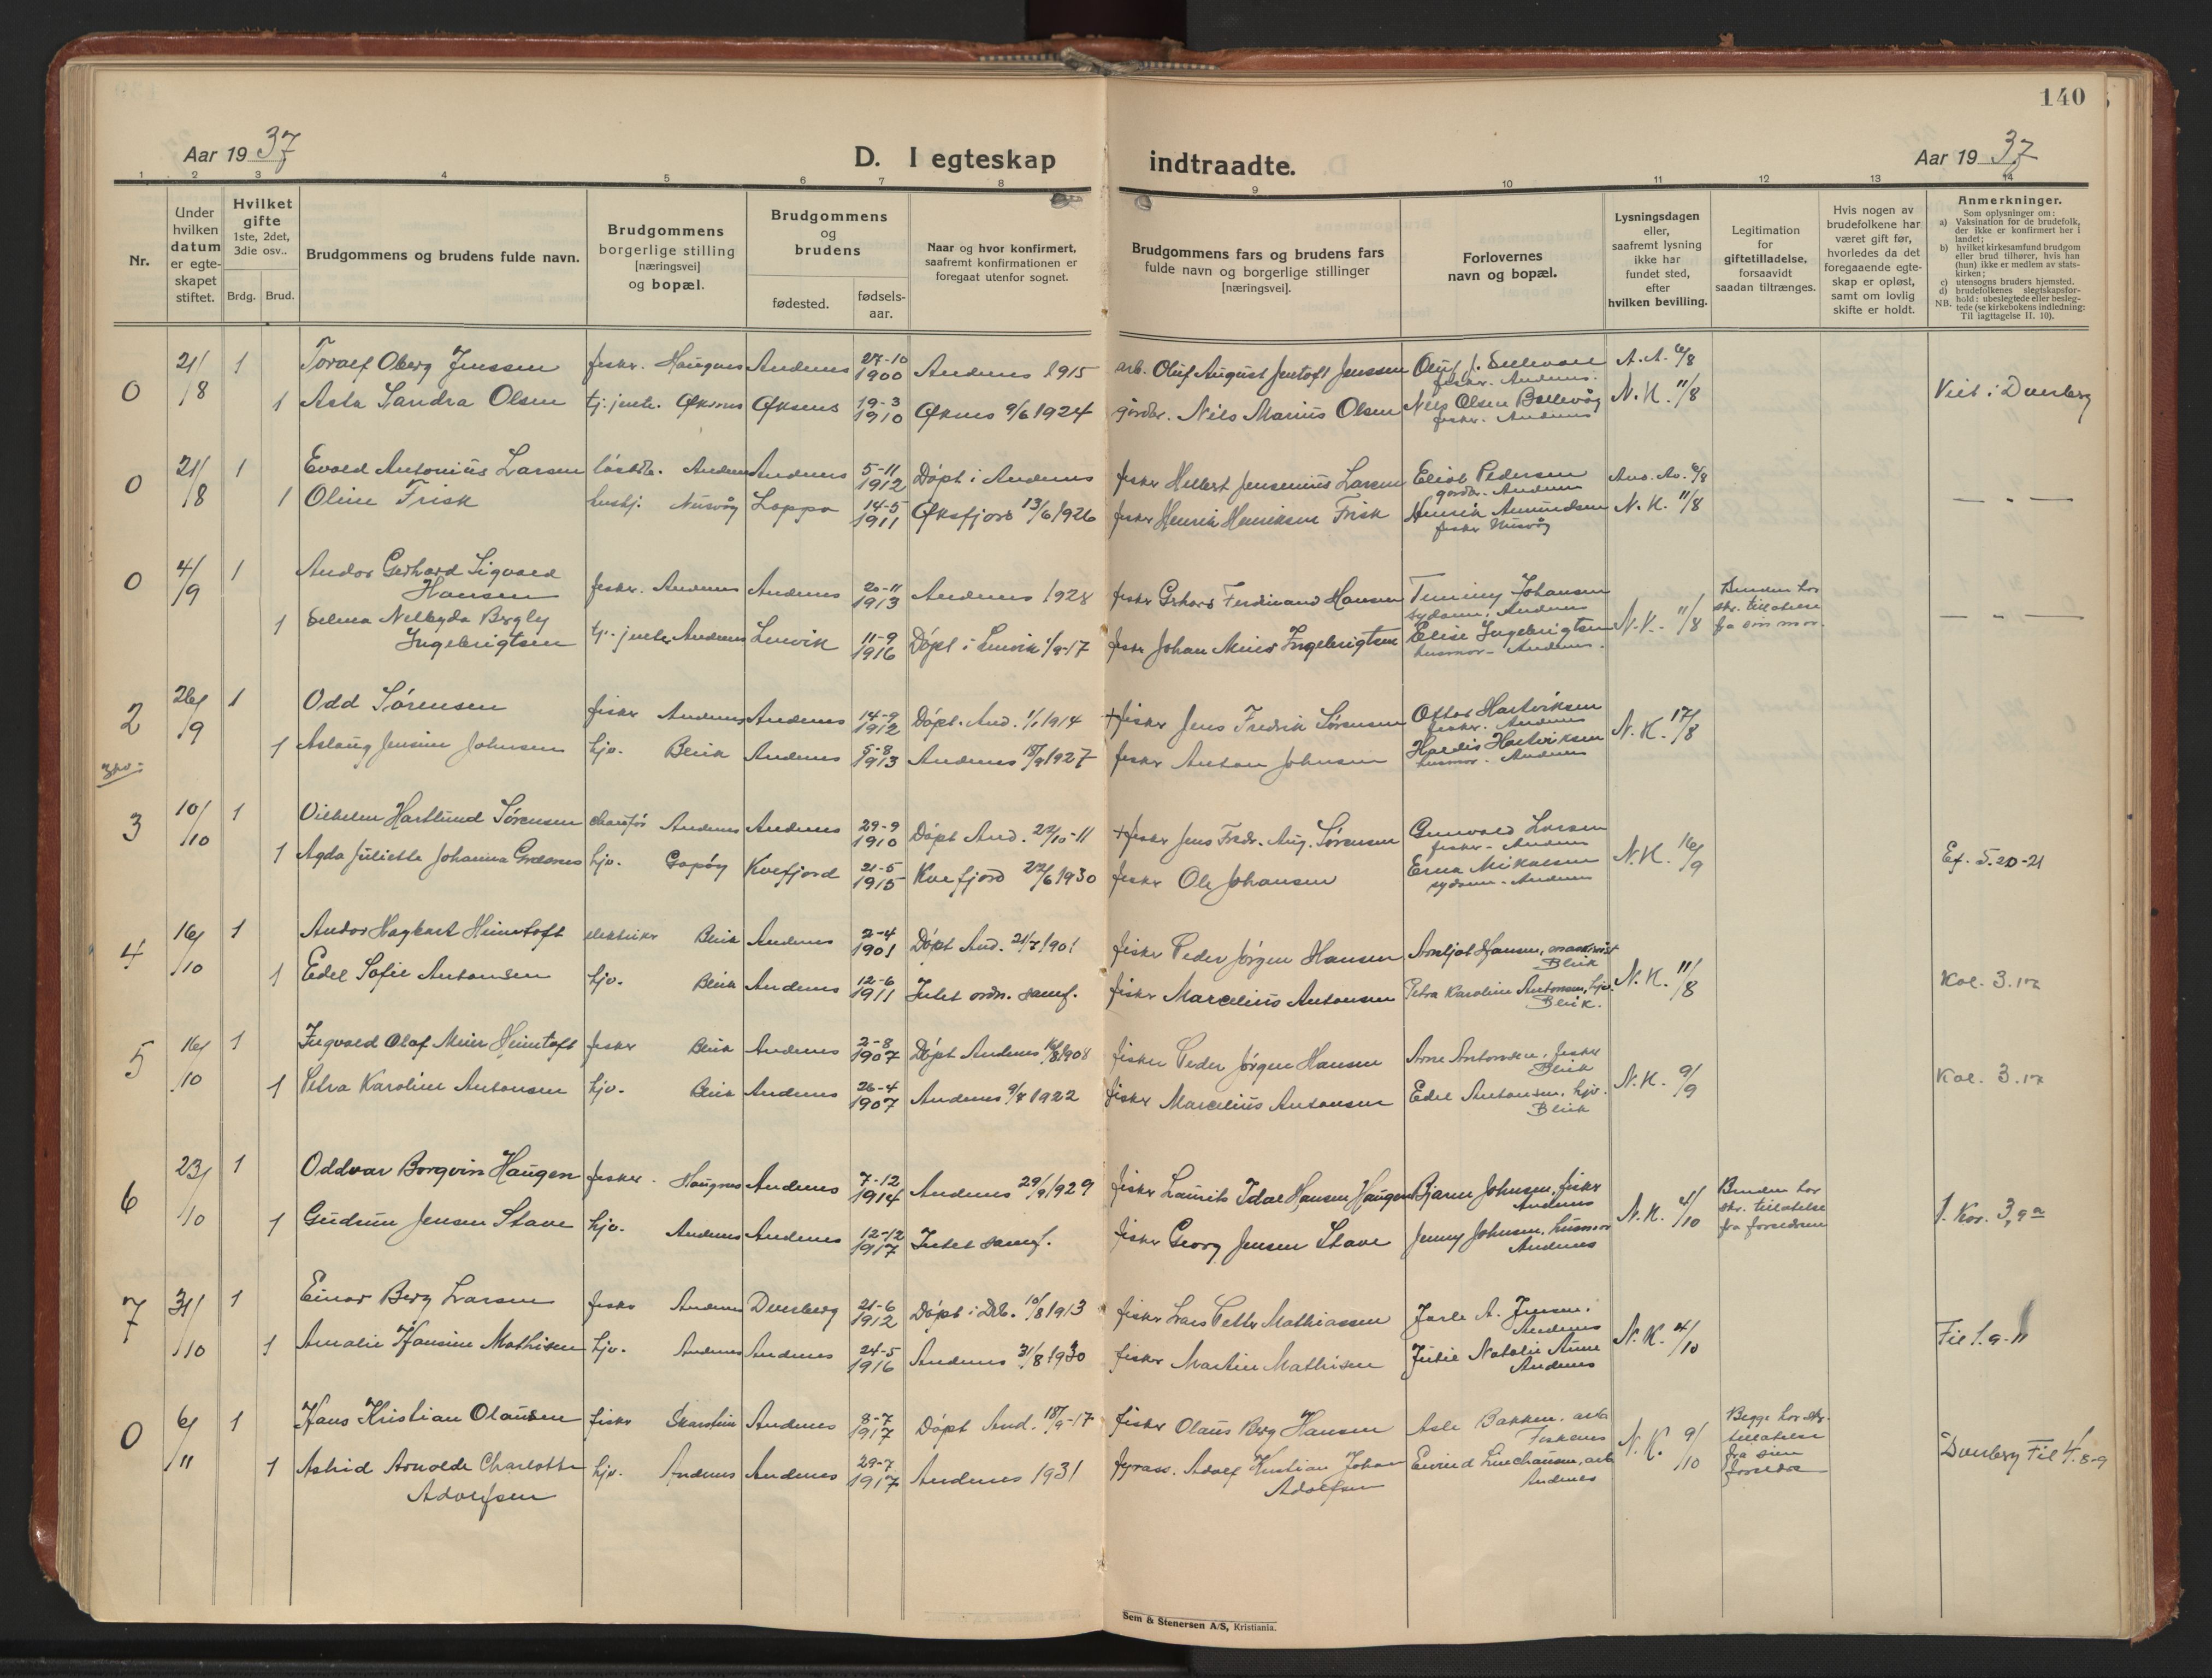 140
Aar 19 37
D. I egteskap
indtraadte.
Aar 19 37
1 2 3 4 5 6 7 8 9 10 11 12 13 14
Nr.
Under hvilken datum er egte-skapet stiftet.
Hvilket gifte
1ste, 2det, 3die osv..
Brdg. Brud.
Brudgommens og brudens fulde navn.
Brudgommens borgerlige stilling [næringsvei] og bopæl.
Brudgommens og brudens
fødested.
fødsels-aar.
Naar og hvor konfirmert, saafremt konfirmationen er foregaat utenfor sognet.
Brudgommens fars og brudens fars fulde navn og borgerlige stillinger [næringsvei].
Forlovernes navn og bopæl.
Lysningsdagen eller, saafremt lysning ikke har fundet sted, efter hvilken bevilling.
Legitimation for giftetilladelse, forsaavidt saadan tiltrænges.
Hvis nogen av brudefolkene har været gift før, hvorledes da det foregaaende egte-skap er opløst, samt om lovlig skifte er holdt.
Anmerkninger.
Som oplysninger om:
a) Vaksination for de brudefolk, der ikke er konfirmert her i landet;
b) hvilket kirkesamfund brudgom eller brud tilhører, hvis han (hun) ikke er medlem av stats-kirken;
c) utensogns bruders hjemsted.
d) brudefolkenes slegtskapsfor-hold: ubeslegtede eller besleg-tede (se kirkebokens indledning: Til iagttagelse II. 10).
NB.
0 21/8 1 Toralf Oberg Jenssen fisker. Haugnes Andenes 27-10 1900 Andenes 1915 arb. Oluf August Jentoft Jenssen Oluf J. fisker. Andenes. A. A. 6/8
1 Asta Sandra Olsen tj. jente. Øksnes Øksnes 19-3 1910 Øksnes 9/6 1924 gårdbr. Nils Marius Olsen Nils Olsen fisker. Andenes N. K. 11/8 Viet i Dverberg
0 21/8 1 Evald Antonius Larsen Andenes Andenes 5-11 1912 Døpt i Andenes fisker Hilbert Jensenius Larsen Eliot Pedersen gårdbr. Andenes And. Av. 6/8
1 Oline Frisk hushj. Nusvåg Loppa 14-5 1911 Øksfjord 13/6 1926 fisker Henrik Henriksen Frisk Henrik Amundsen fisker Nusvåg N. K. 11/8 — „ —
0 4/9 1 Andor Gerhard Sigvald Hansen fisker. Andenes Andenes 20-11 1913 Andenes 1928 fisker Gerhard Ferdinand Hansen Johansen sydame, Andenes
1 Selma Nelbyda Bergly Ingebrigtsen tj. jente Andenes Lenvik 11-9 1916 Døpt i Lenvik 1/9-17 fisker Johan Meier Ingebrigtsen Elise Ingebrigtsen husmor - Andenes. N. K. 11/8 Bruden har skr. tillatelse fra sin mor. — „ —
2 26/9 1 Odd Sørensen fisker Andenes Andenes 14-9 1912 Døpt. And. 1/1 1914 +fisker Jens Fredrik Sørensen Ottar Hartviksen fisker. Andenes
1 Aslaug Jensine Johnsen hjv. Bleik Andenes 5-8 1913 Andenes 18/9 1927 fisker Anton Johnsen Hardis Hartviksen husmor. Andenes N. K. 17/8
3 10/10 1 Vilhelm Hartlund Sørensen chaufør Andenes Andenes 29-9 1910 Døpt And. 22/10-11 +fisker Jens Fredr. Aug. Sørensen Gunvald Larsen fisker - Andenes
1 Agda Juliette Johanna hjv. Gapøy Kvefjord 21-5 1915 Kvefjord 22/6 1930 fisker Ole Johansen Erna Mikalsen sydame - Andenes N. K. 16/9 Ef. 5.20-21
4 16/10 1 Andor Hagbart Heimtoft elektriker Bleik Andenes 2-4 1901 Døpt And. 21/7 1901 fisker Peder Jørgen Hansen Arnljot Hansen, maskinist Bleik
1 Edel Sofie Antonsen hjv. Bleik Andenes 12-6 1911 Intet ordn. samf. fisker Marcelius Antonsen Petra Karoline Antonsen, hjv. Bleik. N. K. 11/8 Kol. 3.17
5 16/10 1 Ingvald Olaf Meier Heimtoft fisker Bleik Andenes 2-8 1907 Døpt Andenes 16/8 1908 fisker Peder Jørgen Hansen Arne Antonsen, fisker Bleik
1 Petra Karoline Antonsen hjv. Bleik Andenes 26-4 1907 Andenes 9/7 1922 fisker Marcelius Antonsen Edel Antonsen, hjv. Bleik N. K. 9/9 Kol. 3.17
6 23/10 1 Oddvar Borgvin Haugen fisker - Haugnes Andenes 7-12 1914 Andenes 29/9 1929 fisker Laurits Idal Hansen Haugen Bjarne Johnsen, fisker Andenes
1 Gudrun Jensen Stave hjv. Andenes Andenes 12-12 1917 Intet samf. fisker Georg Jensen Stave Jenny Johnsen, husmor Andenes N. K. 4/10 Bruden har skr. tillatelse fra foreldrene 1. Kor. 3,9a
7 31/10 1 Einar Berg Larsen fisker Andenes Dverberg 21-6 1912 Døpt i Dvb. 10/8 1913 fisker Lars Petter Mathiassen Jarle A. Jensen. Andenes
1 Amalie Hansine Mathisen hjv. Andenes Andenes 24-5 1916 Andenes 31/8 1930 fisker Martin Mathisen Julie Natalie Aune Andenes N. K. 4/10 Fil 1.9-11
0 6/11 1 Hans Kristian Olausen fisker Skarstein Andenes 8-7 1917 Døpt And. 18/9-17 fisker Olaus Berg Hansen Asle Bakken. arb. Fiskenes
1 Astrid Arnolde Charlotte Adolfsen hjv. Andenes Andenes 29-7 1917 Andenes 1931 fyrass. Adolf Kristian Johan Adolfsen Eivind arb. Andenes N. K. 9/10 Begge har skr. tillatelse fra sine foreldre Dverberg Fil 4.8-9
Sem & Stenersen A/S, Kristiania.